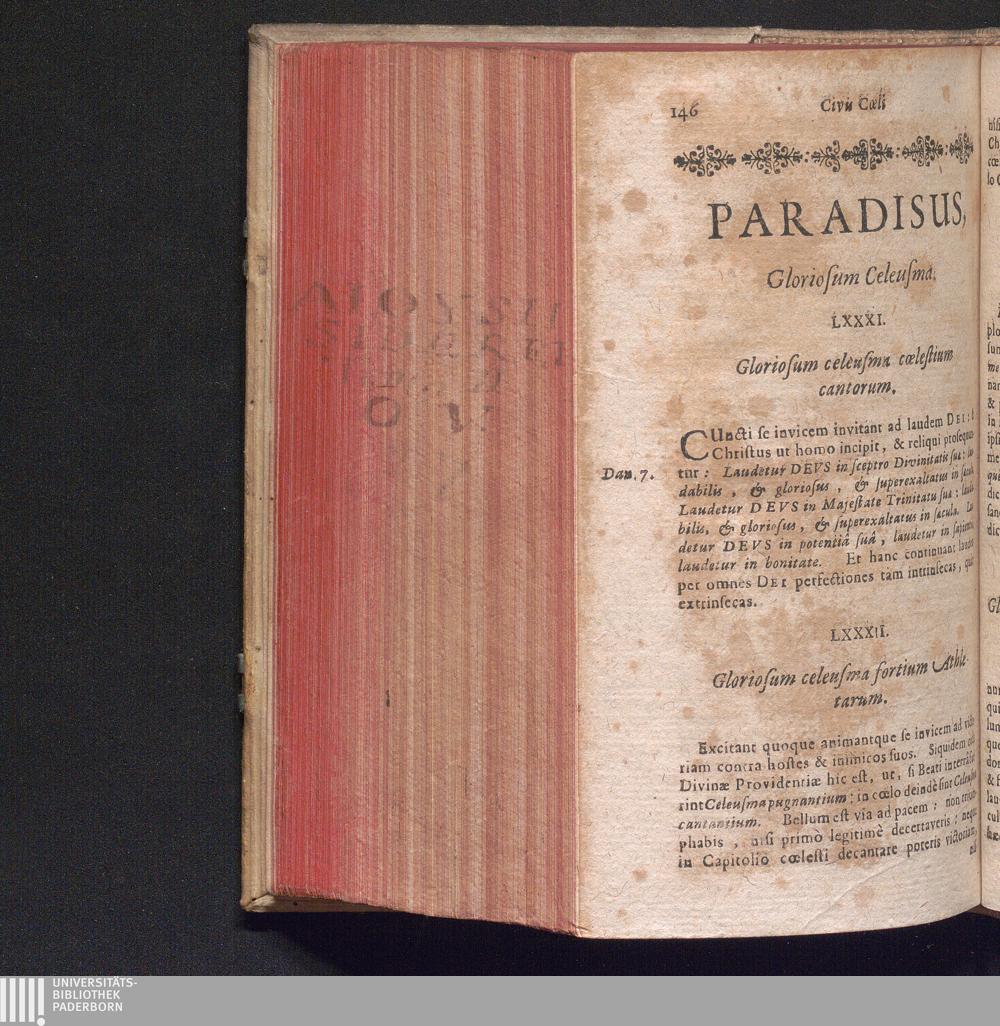 146 Civis Cœli
PARADISUS,
Gloriosum Celeusma.
LXXXI.
Gloriosum celeusma cœlestium
cantorum.
CUncti se invicem invitant ad laudem DEI: &
Christus ut homo incipit, & reliqui prosequun
Dan. 7.
tur: Laudetur DEVS in sceptro Divinitatis suæ: lau
dabilis, & gloriosus, & superexaltatus in sæcula
Laudetur DEVS in Majestate Trinitatis suæ: lauda
bilis, & gloriosus, & superexaltatus in sæcula. Lau
detur DEVS in potentiâ suâ, laudetur in sapientia
laudetur in bonitate. Et hanc continuant laudes
per omnes DEI perfectiones tam intrinsecas, quàm
extrinsecas.
LXXXII.
Gloriosum celeusma fortium Athle-
tarum.
Excitant quoque animantque se invicem ad victo
riam contra hostes & inimicos suos. Siquidem
Divinæ Providentiæ hic est, ut, si Beati in terrâ
rint Celeusma pugnantium: in cœlo deinde sint Celeusma
cantantium. Bellum est via ad pacem: non trium
phabis, nisi primò legitimè decertaveris; neque
in Capitolio cœlesti decantare poteris victoriam,
nisi
UNIVERSITÄTS-
BIBLIOTHEK
PADERBORN